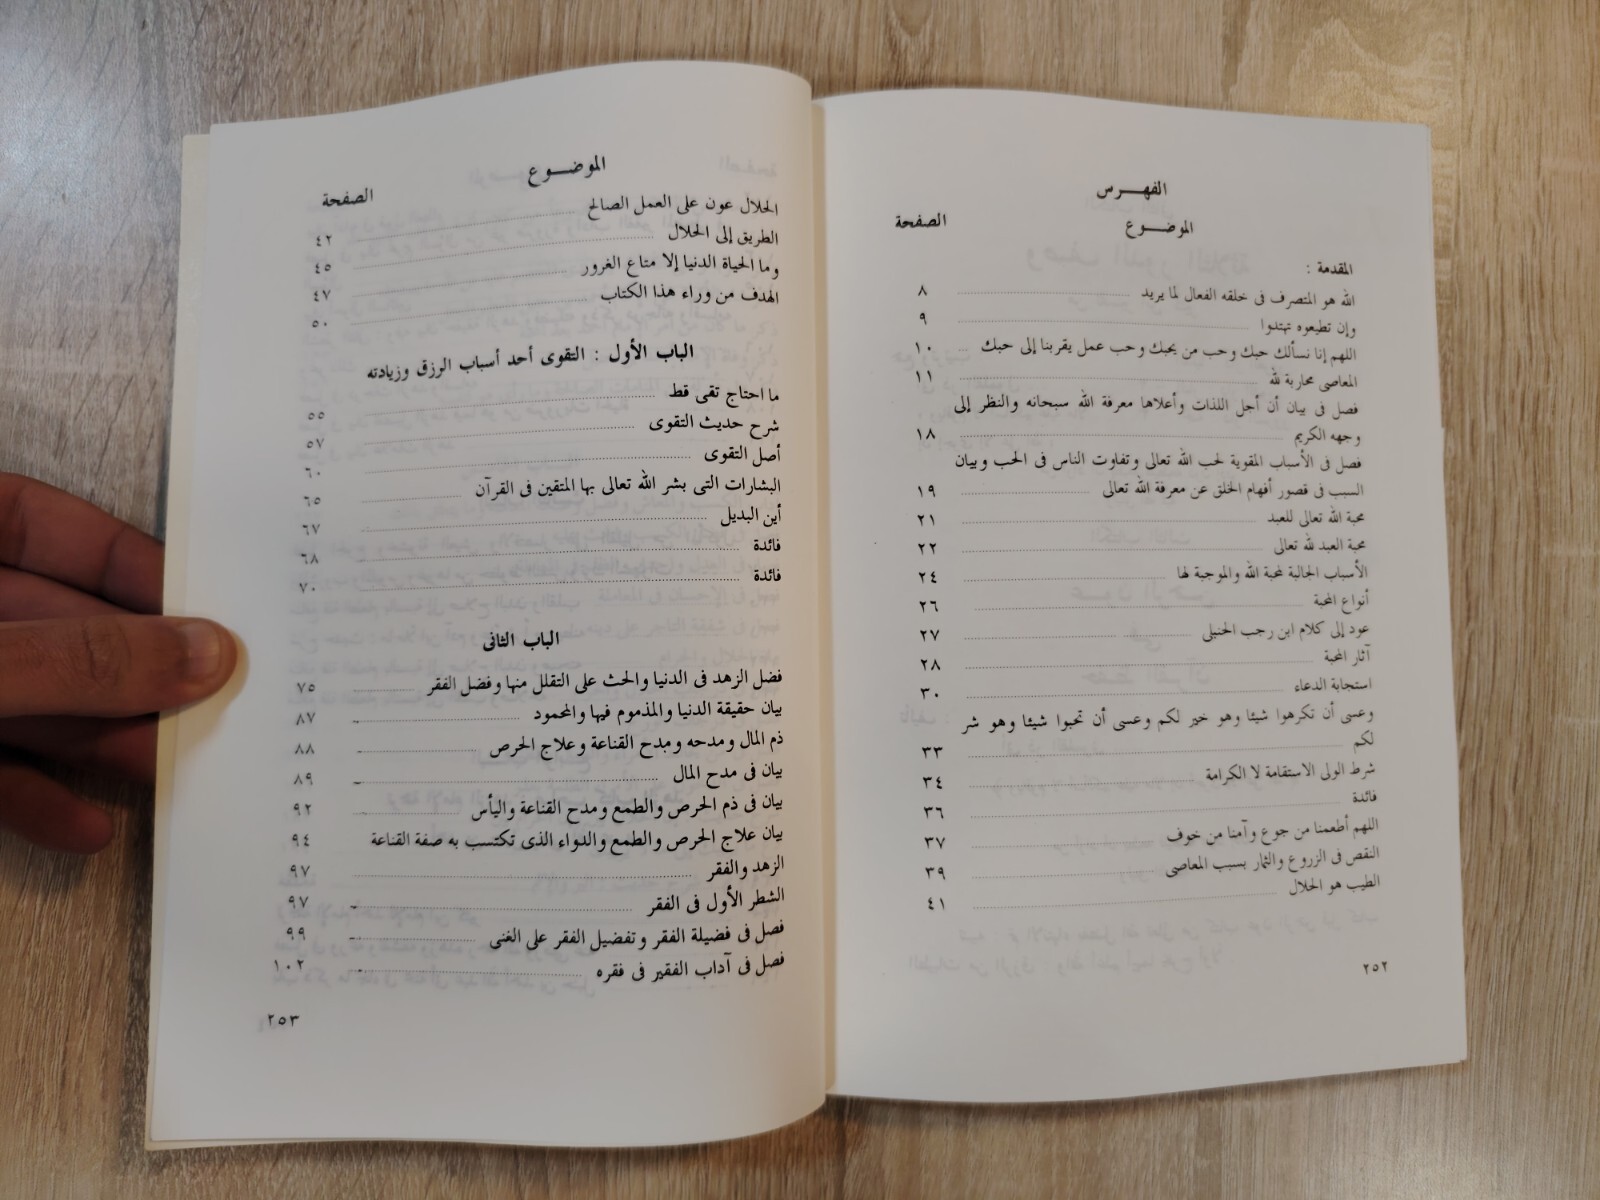 الفهـــرس
الموضـــوع الصفحة
المقدمة :
الله هو المتصرف فى خلقه الفعال لما يريد ٨
وإن تطيعوه تهتدوا ٩
اللهم إنا نسألك حبك وحب من يحبك وحب عمل يقربنا إلى حبك ١٠
المعاصى محاربة لله ١١
فصل فى بيان أن أجل اللذات وأعلاها معرفة الله سبحانه والنظر إلى
وجهه الكريم ١٨
فصل فى الأسباب المقوية لحب الله تعالى وتفاوت الناس فى الحب وبيان
السبب فى قصور أفهام الخلق عن معرفة الله تعالى ١٩
محبة الله تعالى للعبد ٢١
محبة العبد لله تعالى ٢٢
الأسباب الجالبة لمحبة الله والموجبة لها ٢٤
أنواع المحبة ٢٦
عود إلى كلام ابن رجب الحنبلى ٢٧
آثار المحبة ٢٨
استجابة الدعاء ٣٠
وعسى أن تكرهوا شيئا وهو خير لكم وعسى أن تحبوا شيئا وهو شر
لكم ٣٣
شرط الولى الاستقامة لا الكرامة ٣٤
فائدة ٣٦
اللهم أطعمنا من جوع وآمنا من خوف ٣٧
النقص فى الزروع والثمار بسبب المعاصى ٣٩
الطيب هو الحلال ٤١
٢٥٢
الموضـــوع الصفحة
الحلال عون على العمل الصالح ٤٢
الطريق إلى الحلال ٤٥
وما الحياة الدنيا إلا متاع الغرور ٤٧
الهدف من وراء هذا الكتاب ٥٠
الباب الأول : التقوى أحد أسباب الرزق وزيادته
ما احتاج تقى قط ٥٥
شرح حديث التقوى ٥٧
أصل التقوى ٦٠
البشارات التى بشر الله تعالى بها المتقين فى القرآن ٦٥
أين البديل ٦٧
فائدة ٦٨
فائدة ٧٠
الباب الثانى
فضل الزهد فى الدنيا والحث على التقلل منها وفضل الفقر ٧٥
بيان حقيقة الدنيا والمذموم فيها والمحمود ٨٧
ذم المال ومدحه ومدح القناعة وعلاج الحرص ٨٨
بيان فى مدح المال ٨٩
بيان فى ذم الحرص والطمع ومدح القناعة واليأس ٩٢
بيان علاج الحرص والطمع والدواء الذى تكتسب به صفة القناعة ٩٤
الزهد والفقر ٩٧
الشطر الأول فى الفقر ٩٧
فصل فى فضيلة الفقر وتفضيل الفقر على الغنى ٩٩
فصل فى آداب الفقير فى فقره ١٠٢
٢٥٣